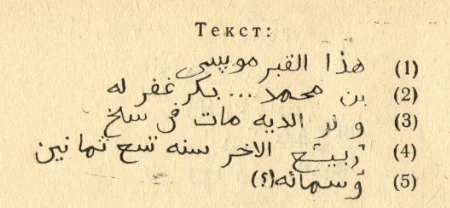 Текст:
(1) هذا القبر موسى
(2) بن محمد ... بكر غفر له
(3) و لو الديه مات فى سلخ
(4) ربيع الاخر سنه تسع ثمانين
(5) و سمائه (؟)